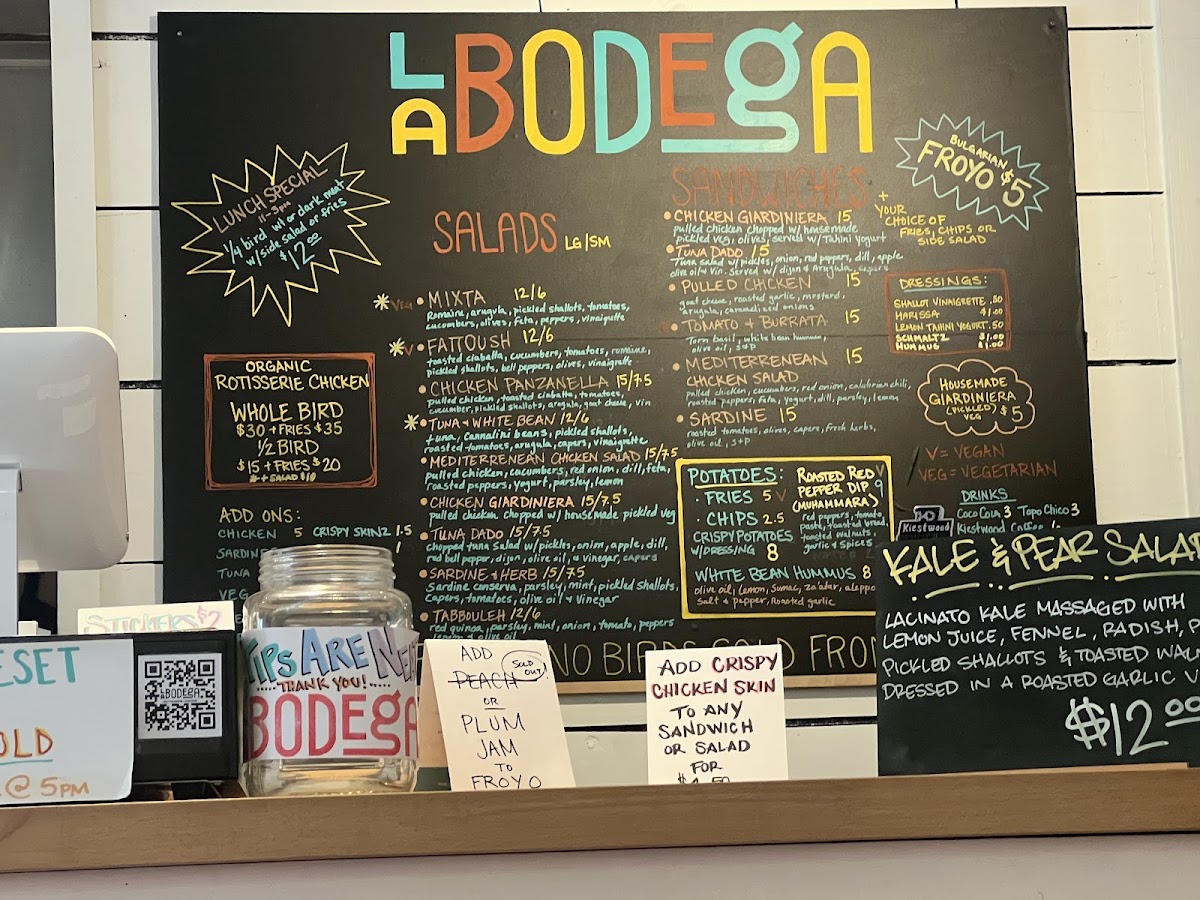 LA BODEGA
LUNCH SPECIAL
11-3pm
1/4 bird w/ or dark meat
w/side salad or fries
$12.00
ORGANIC
ROTISSERIE CHICKEN
WHOLE BIRD
$30 + FRIES $35
1/2 BIRD
$15 + FRIES $20
+ SALAD $10
ADD ONS:
CHICKEN 5 CRISPY SKINZ 1.5
SARDINE
TUNA
VEG
SALADS LG/SM
VEG • MIXTA 12/6
Romaine, arugula, pickled shallots, tomatoes,
cucumbers, olives, feta, peppers, vinaigrette
V • FATTOUSH 12/6
toasted ciabatta, cucumbers, tomatoes, romaine,
pickled shallots, bell peppers, olives, vinaigrette
• CHICKEN PANZANELLA 15/7.5
pulled chicken, toasted ciabatta, tomatoes,
cucumber, pickled shallots, arugula, goat cheese, vin
• TUNA & WHITE BEAN 12/6
tuna, cannalini beans, pickled shallots,
roasted tomatoes, arugula, capers, vinaigrette
• MEDITERRENEAN CHICKEN SALAD 15/7.5
pulled chicken, cucumbers, red onion, dill, feta,
roasted peppers, yogurt, parsley, lemon
• CHICKEN GIARDINIERA 15/7.5
pulled chicken chopped w/ housemade pickled veg
• TUNA DADO 15/7.5
chopped tuna salad w/pickles, onion, apple, dill,
red bell pepper, dijon, olive oil, vinegar, capers
• SARDINE & HERB 15/7.5
Sardine conserva, parsley, mint, pickled shallots,
capers, tomatoes, olive oil & vinegar
• TABBOULEH 12/6
red quinoa, parsley, mint, onion, tomato, peppers
lemon & olive oil
SANDWICHES
+ YOUR
CHOICE OF
FRIES, CHIPS OR
SIDE SALAD
• CHICKEN GIARDINIERA 15
pulled chicken chopped w/ housemade
pickled veg, olives, served w/ Tahini yogurt
• TUNA DADO 15
Tuna salad w/ pickles, onion, red peppers, dill, apple
olive oil & vin. served w/ dijon & Arugula, capers
• PULLED CHICKEN 15
goat cheese, roasted garlic, mustard,
arugula, caramelized onions
• TOMATO & BURRATA 15
Torn basil, white bean hummus,
olive oil, S+P
• MEDITERRENEAN 15
CHICKEN SALAD
pulled chicken, cucumbers, red onion, calabrian chili,
roasted peppers, feta, yogurt, dill, parsley, lemon
• SARDINE 15
roasted tomatoes, olives, capers, fresh herbs,
olive oil, S+P
BULGARIAN
FROYO $5
DRESSINGS:
SHALLOT VINAIGRETTE .50
HARISSA $1.00
LEMON TAHINI YOGURT .50
SCHMALTZ $1.00
HUMMUS $1.00
HOUSEMADE
GIARDINIERA
(PICKLED)
VEG $5
V = VEGAN
VEG = VEGETARIAN
DRINKS
Coco Cola 3 Topo Chico 3
Kiestwood Coffee
Kiestwood
POTATOES:
• FRIES 5 V
• CHIPS 2.5
CRISPY POTATOES
W/DRESSING 8
ROASTED RED V
PEPPER DIP 9
(MUHAMMARA)
red peppers, tomato
paste, toasted bread,
toasted walnuts,
garlic & spices
WHITE BEAN HUMMUS 8
olive oil, lemon, Sumac, za'atar, aleppo
Salt & pepper, Roasted garlic
NO BIRDS SOLD FROM
KALE & PEAR SALAD
LACINATO KALE MASSAGED WITH
LEMON JUICE, FENNEL, RADISH, P
PICKLED SHALLOTS & TOASTED WALN
DRESSED IN A ROASTED GARLIC V
$12.00
STICKERS $2
LA BODEGA
ESET
OLD
@ 5PM
TIPS ARE NEAT
THANK YOU!
BODEGA
ADD
PEACH SOLD OUT!
OR
PLUM
JAM
TO
FROYO
ADD CRISPY
CHICKEN SKIN
TO ANY
SANDWICH
OR SALAD
FOR